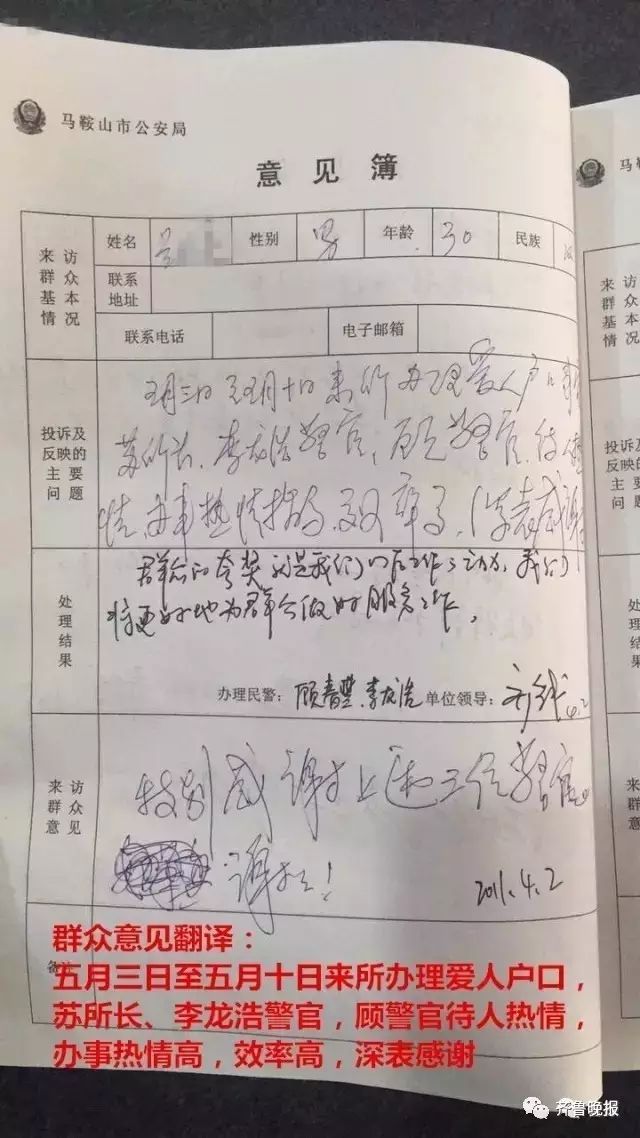 马鞍山市公安局
马鞍
意见簿
来访群众基本情况
姓名 性别 男 年龄 30 民族
联系地址
联系电话 电子邮箱
投诉及反映的主要问题
五月三日至五月十日来所办理爱人户口
苏所长、李龙浩警官，顾警官，待人热
情，办事热情高，效率高，深表感谢
处理结果
群众的夸奖就是我们以后工作的动力，我们
将更好地为群众做好服务工作。
办理民警： 李龙浩 单位领导：
来访群众意见
特别感谢上述三位警官。
谢谢！
2011.4.2
群众意见翻译：
五月三日至五月十日来所办理爱人户口，
苏所长、李龙浩警官，顾警官待人热情，
办事热情高，效率高，深表感谢
齐鲁晚报